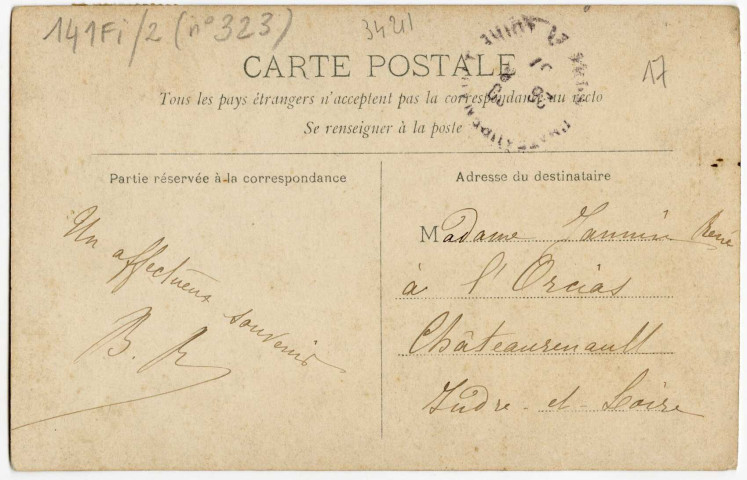 141Fi/2 (n°323)
34211
17
CARTE POSTALE
Tous les pays étrangers n'acceptent pas la correspondance au recto
Se renseigner à la poste
Partie réservée à la correspondance
Un affectueux
souvenir
B. R
Adresse du destinataire
Madame Jannin René
à l'Orcias
Châteaurenault
Indre-et-Loire